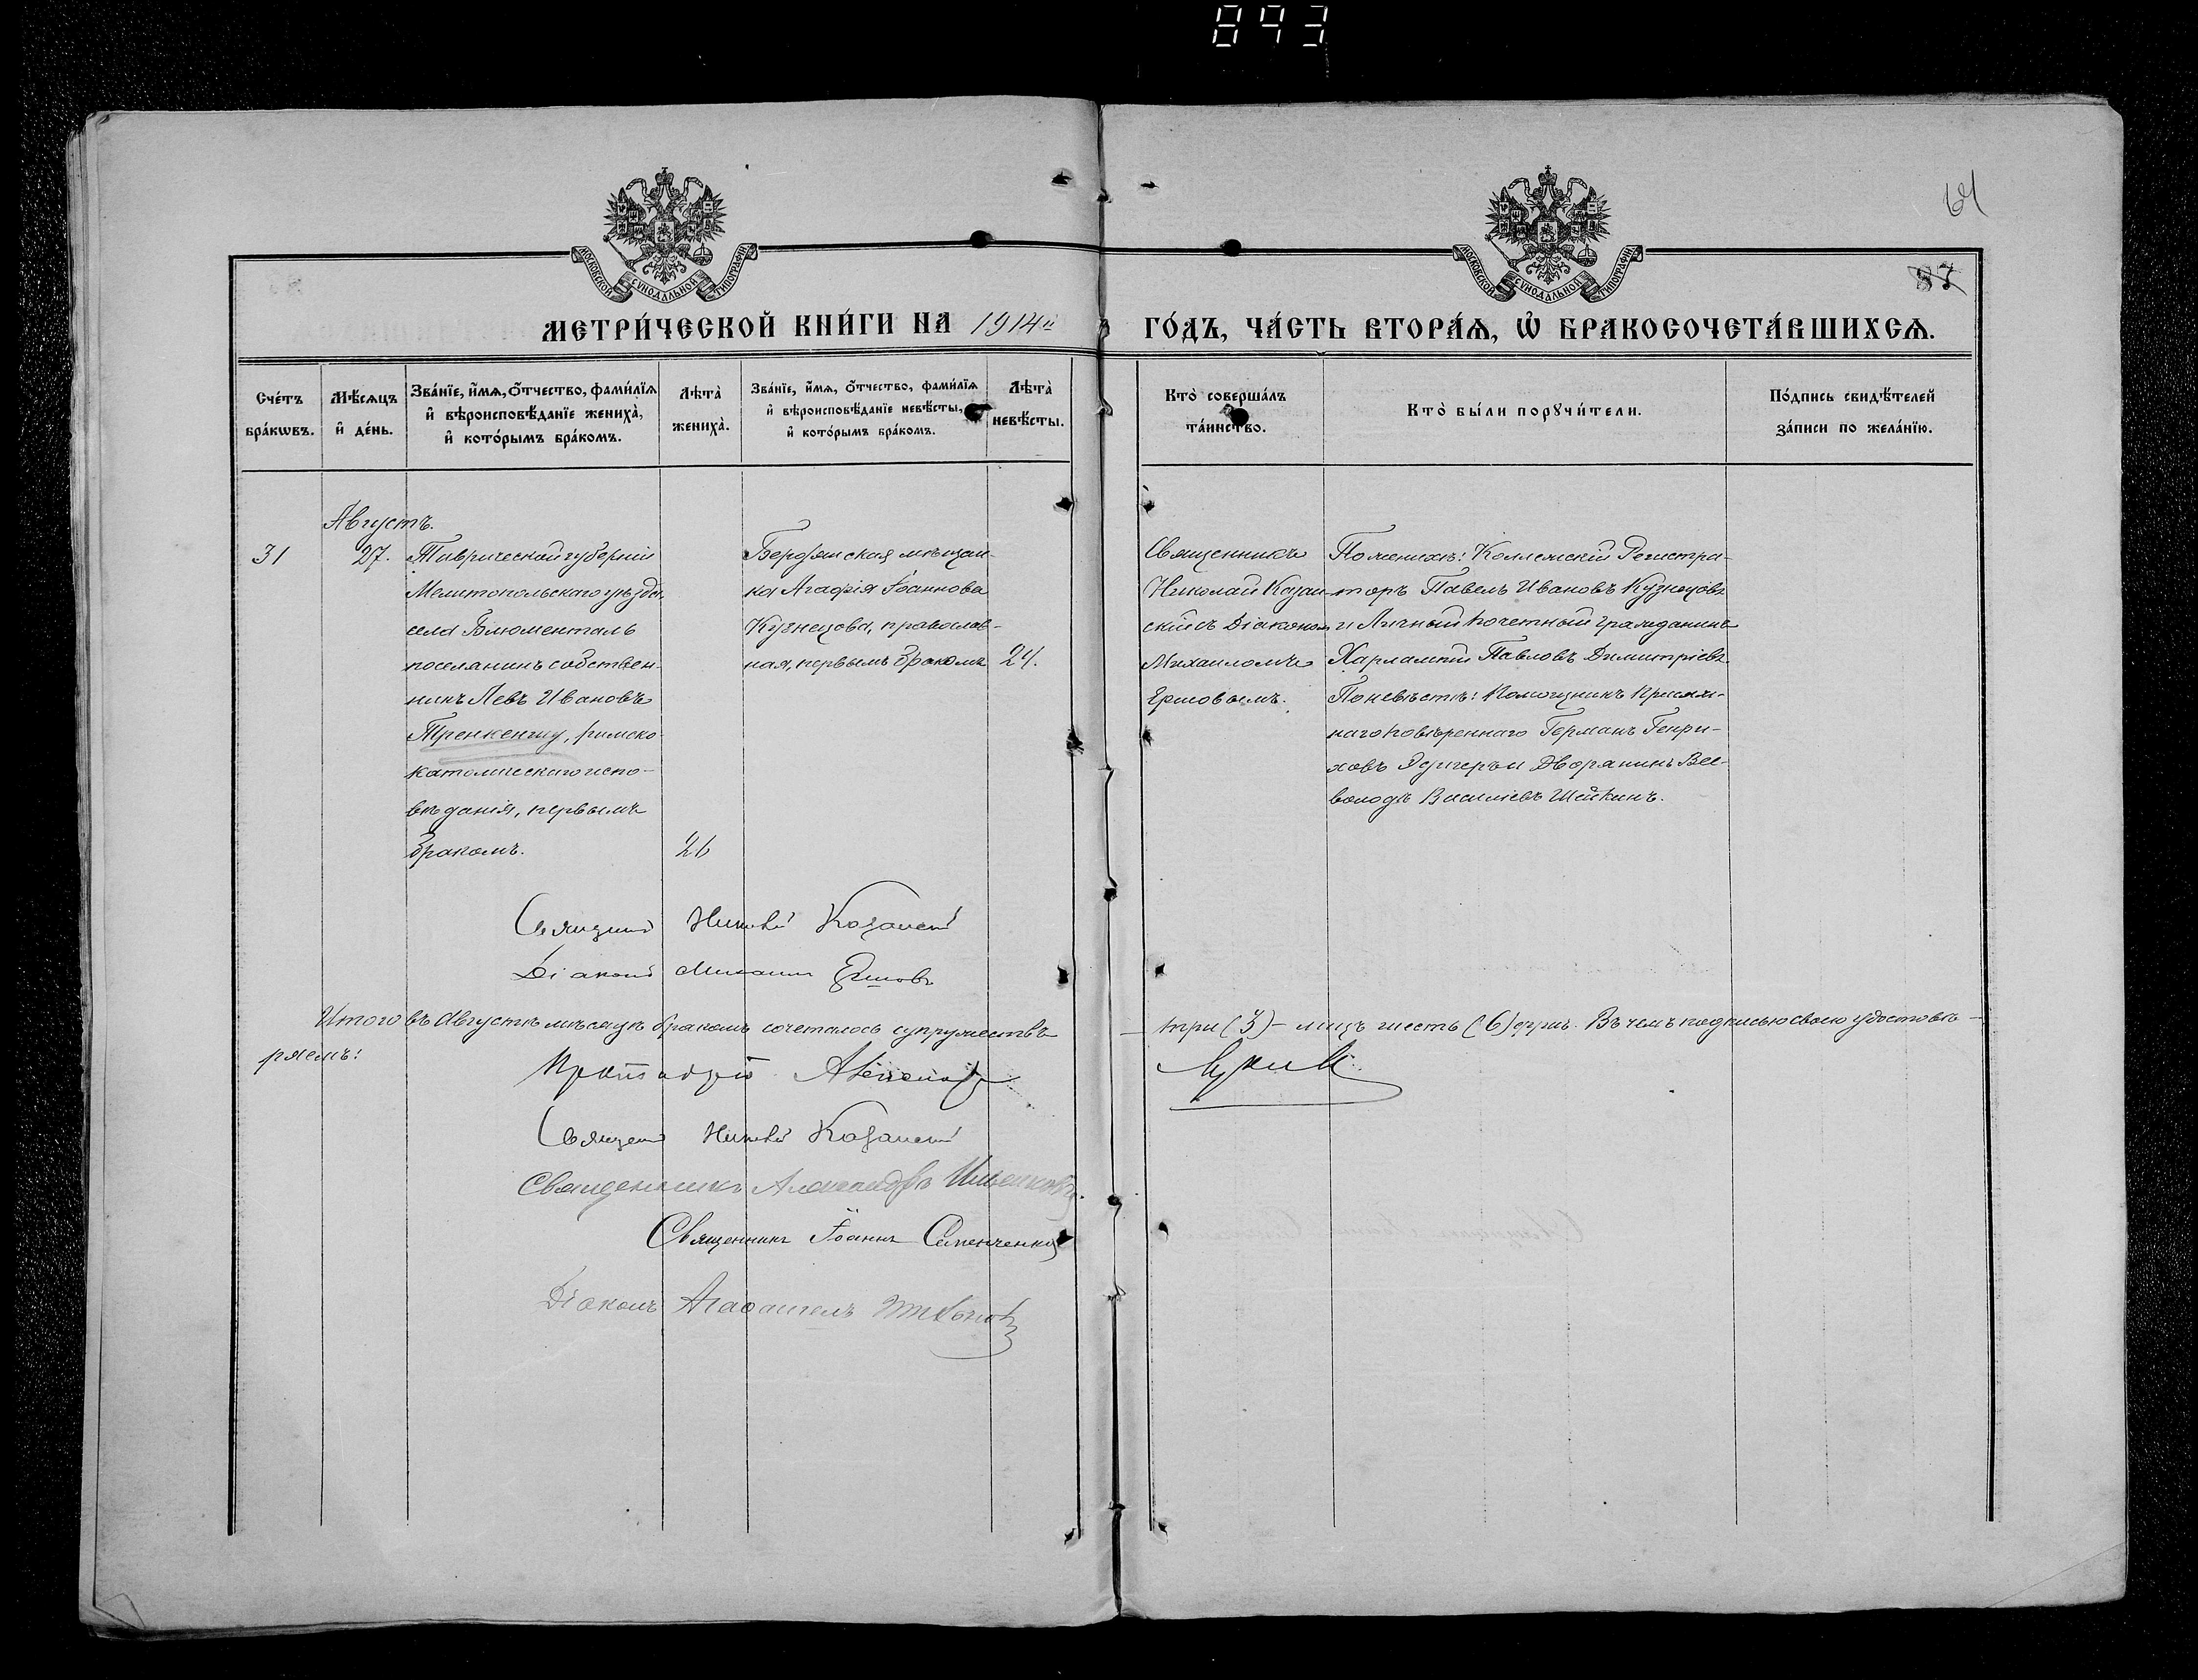 893
64
87
МОСКОВСКОЙ СУНОДАЛЬНОЙ ТИПОГРАФІИ
МОСКОВСКОЙ СУНОДАЛЬНОЙ ТИПОГРАФІИ
МЕТРИ́ЧЕСКОЙ КНИ́ГИ НА 1914й ГО́ДЪ, ЧА́СТЬ ВТОРА́Ѧ, Ѽ БРАКОСОЧЕТА́ВШИХСѦ.
Сче́тъ бра́кѡвъ.
Мѣ́сѧцъ и҆ де́нь.
Зва́нїе, и҆́мѧ, о҆́тчество, фами́лїѧ и҆ вѣроисповѣ́данїе жениха̀, и҆ кото́рымъ бра́комъ.
Лѣта̀ жениха̀.
Зва́нїе, и҆́мѧ, о҆́тчество, фами́лїѧ и҆ вѣроисповѣ́данїе невѣ́сты, и҆ кото́рымъ бра́комъ.
Лѣта̀ невѣ́сты.
Кто̀ соверша́лъ та́инство.
Кто̀ бы́ли порꙋчи́тели.
По́дпись свидѣ́телей за́писи по жела́нїю.
Августъ.
31
27.
Таврической губерніи
Мелитопольскаго уѣзда,
села Блюменталь
поселянинъ собствен-
никъ Левъ Ивановъ
Тренкеншу, римско-
католическаго испо-
вѣданія, первымъ
бракомъ.
26
Бердянская мѣщан-
ка Агафія Іоаннова
Кузнецова, православ-
ная, первымъ бракомъ
24.
Священникъ
Николай Казан-
скій съ Діакономъ
Михаиломъ
Ершовымъ.
По женихѣ: Коллежскій Регистра-
торъ Павелъ Ивановъ Кузнецовъ
и Личный почетный гражданинъ
Харлампій Павловъ Димитріевъ.
По невѣстѣ: Помощникъ Присяж-
наго повѣреннаго Германъ Генри-
ховъ и Дворянинъ Все-
володъ Василіевъ Шейкинъ.
Священникъ Николай Казанскій
Діаконъ Михаилъ Ершовъ
Итого въ Августѣ мѣсяцѣ бракомъ сочеталось супружествъ – три (3) – лицъ шесть (6) душъ. Въ чемъ подписью своею удостовѣ-
ряемъ:
Священникъ Николай Казанскій
Священникъ Александръ
Священникъ Іоаннъ Семенченко
Діаконъ